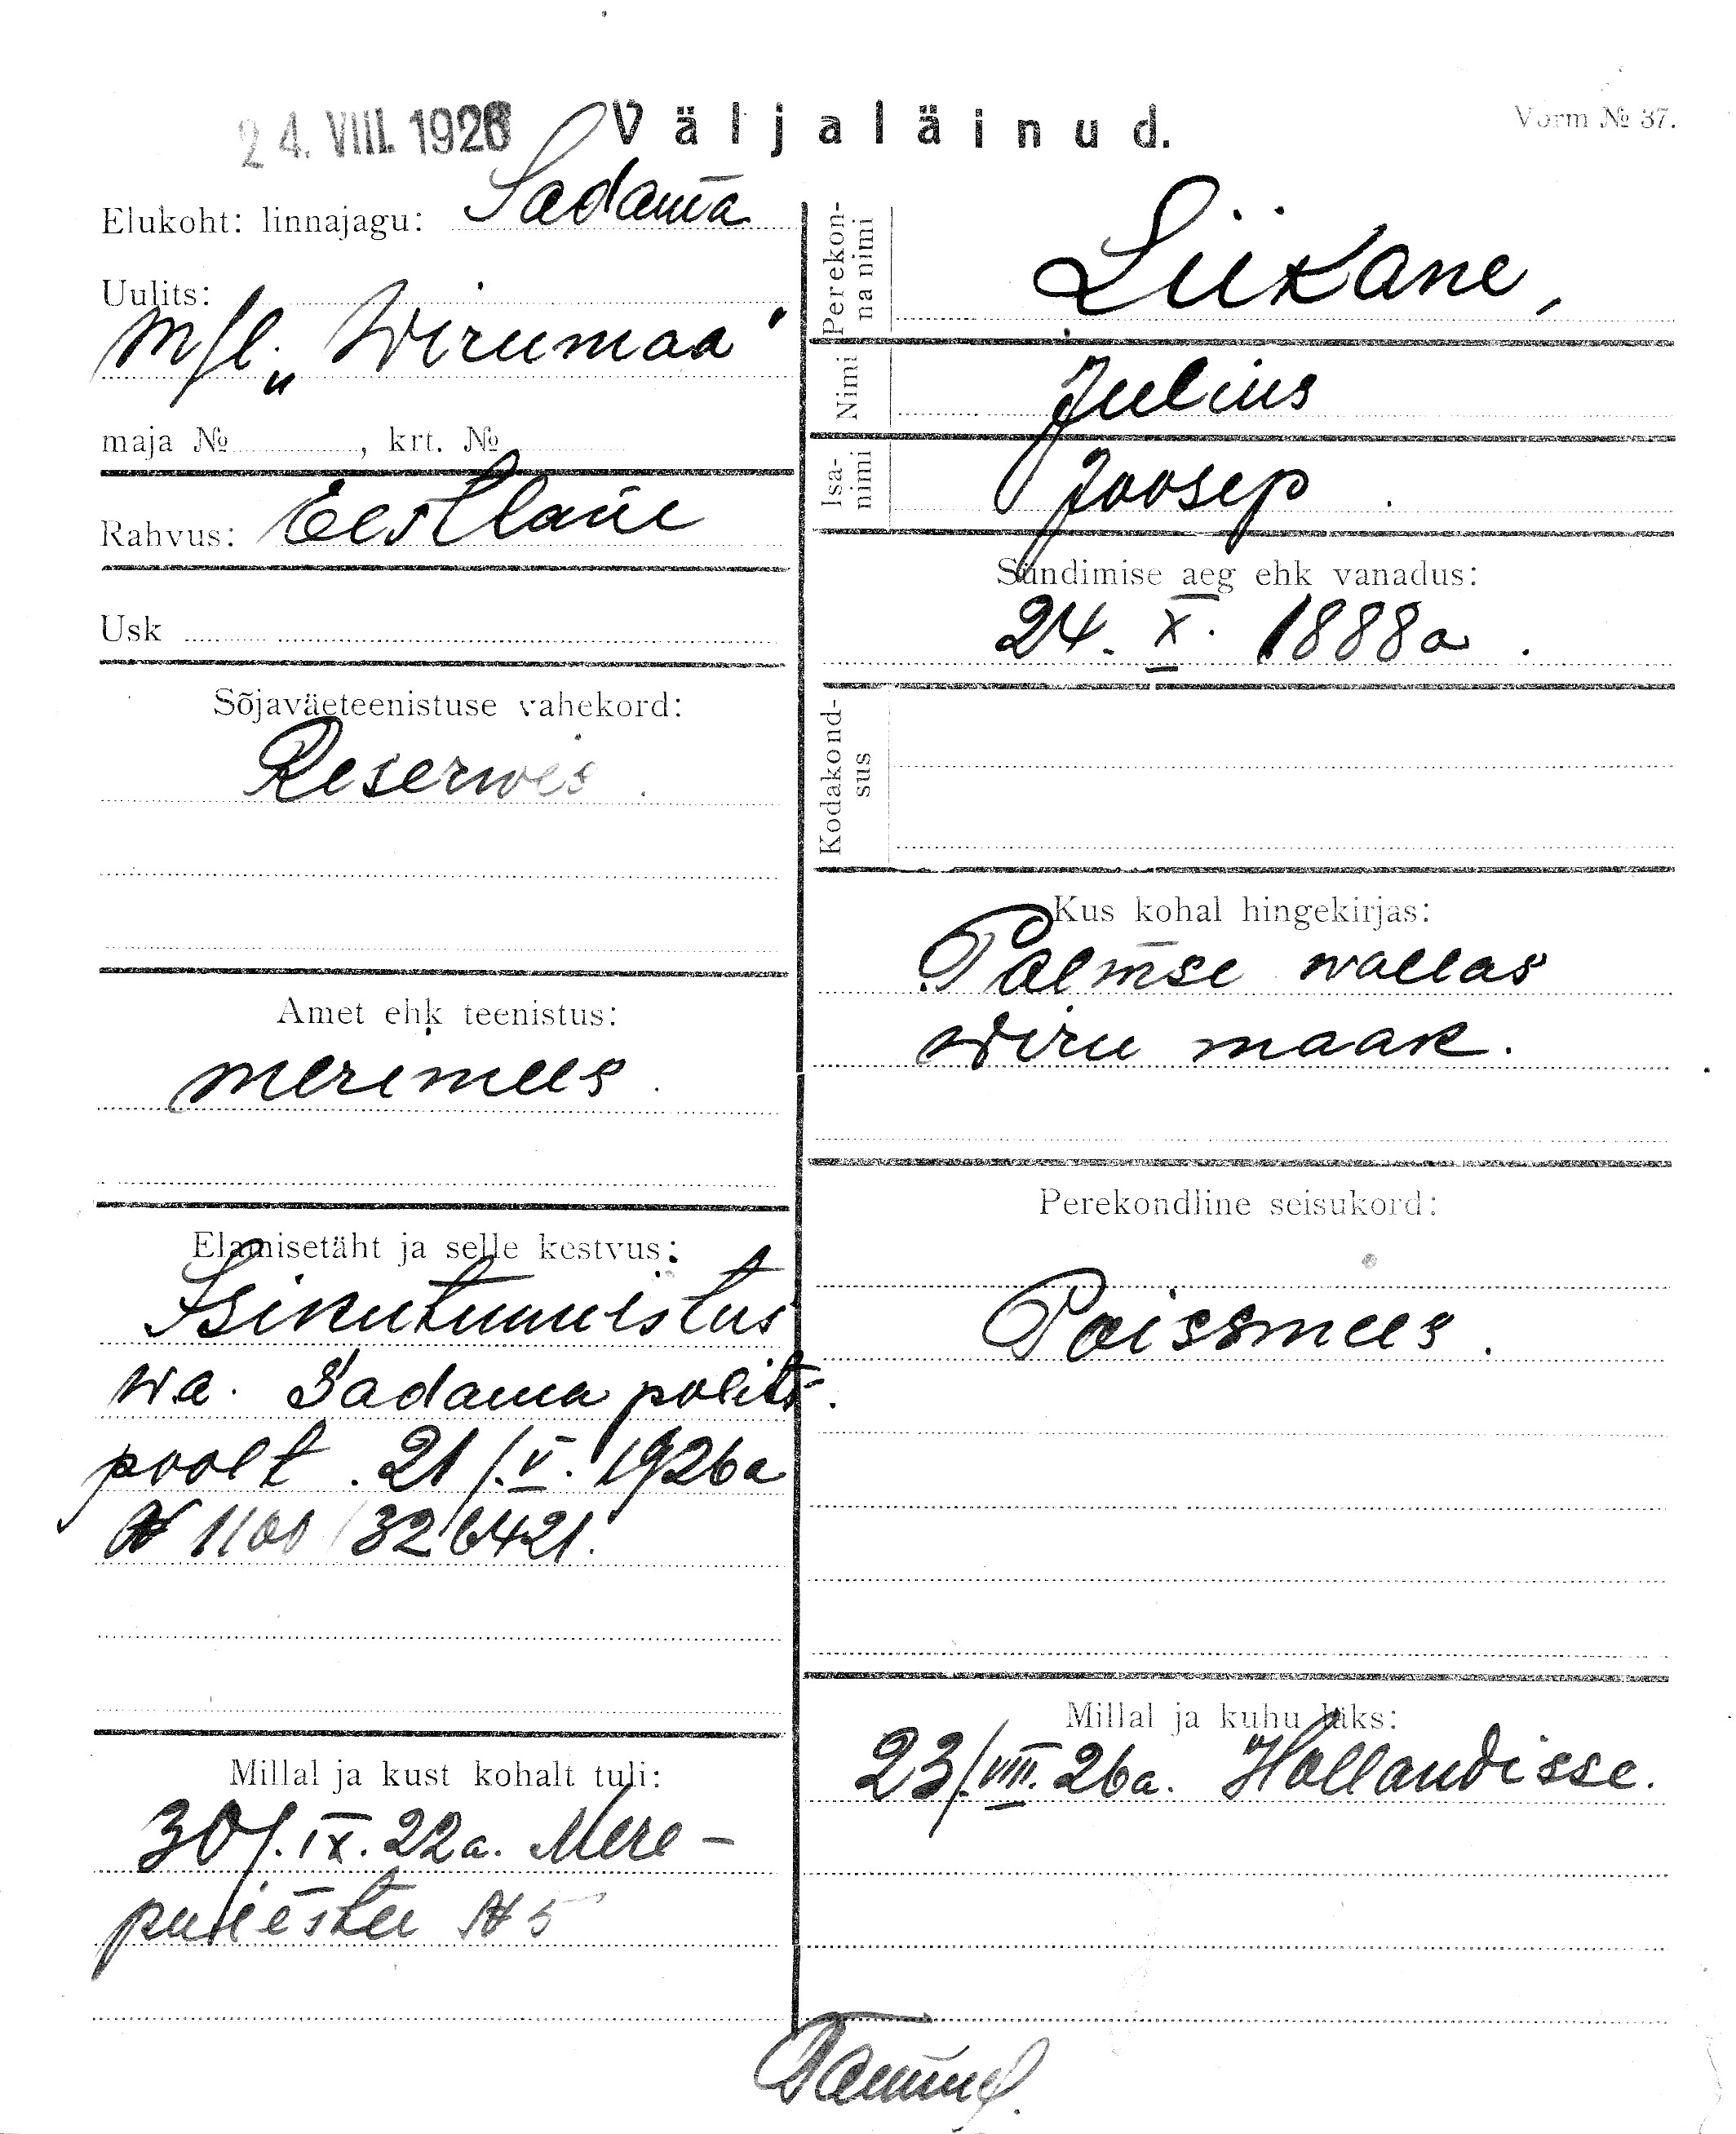 24. VIII. 1926
Väljaläinud.
Vorm № 37.
Elukoht: linnajagu: Sadama
Uulits:
M/l. „Wirumaa"
maja № , krt. №
Rahvus: Eestlane
Usk
Sõjaväeteenistuse vahekord:
Reserwis.
Amet ehk teenistus:
merimees.
Elamisetäht ja selle kestvus:
Isikutunnistus
wa. Sadama polits.
poolt. 21/.V. 1926a
№ 1100/326421.
Millal ja kust kohalt tuli:
30/.IX.22a. Mere-
puiestee № 5
Perekonna nimi
Liikane,
Nimi
Julius
Isanimi
Joosep.
Sündimise aeg ehk vanadus:
24. X. 1888a.
Kodakondsus
Kus kohal hingekirjas:
Palmse wallas
Wiru maak.
Perekondline seisukord:
Poissmees.
Millal ja kuhu läks:
23/.VIII.26a. Hollandisse.